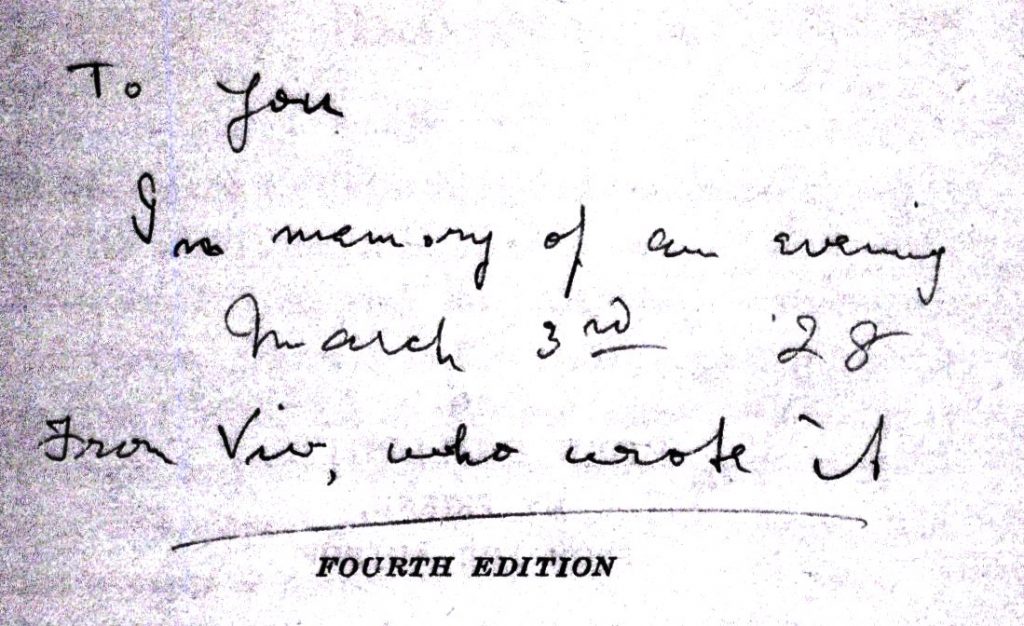 To you
In memory of an evening
March 3rd '28
From Viv, who wrote it
FOURTH EDITION